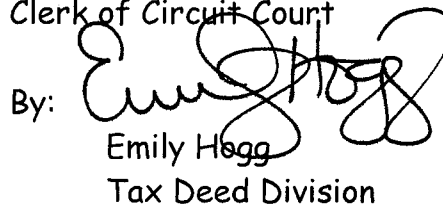 Clerk of Circuit Court
By: Emily Hogg
Emily Hogg
Tax Deed Division